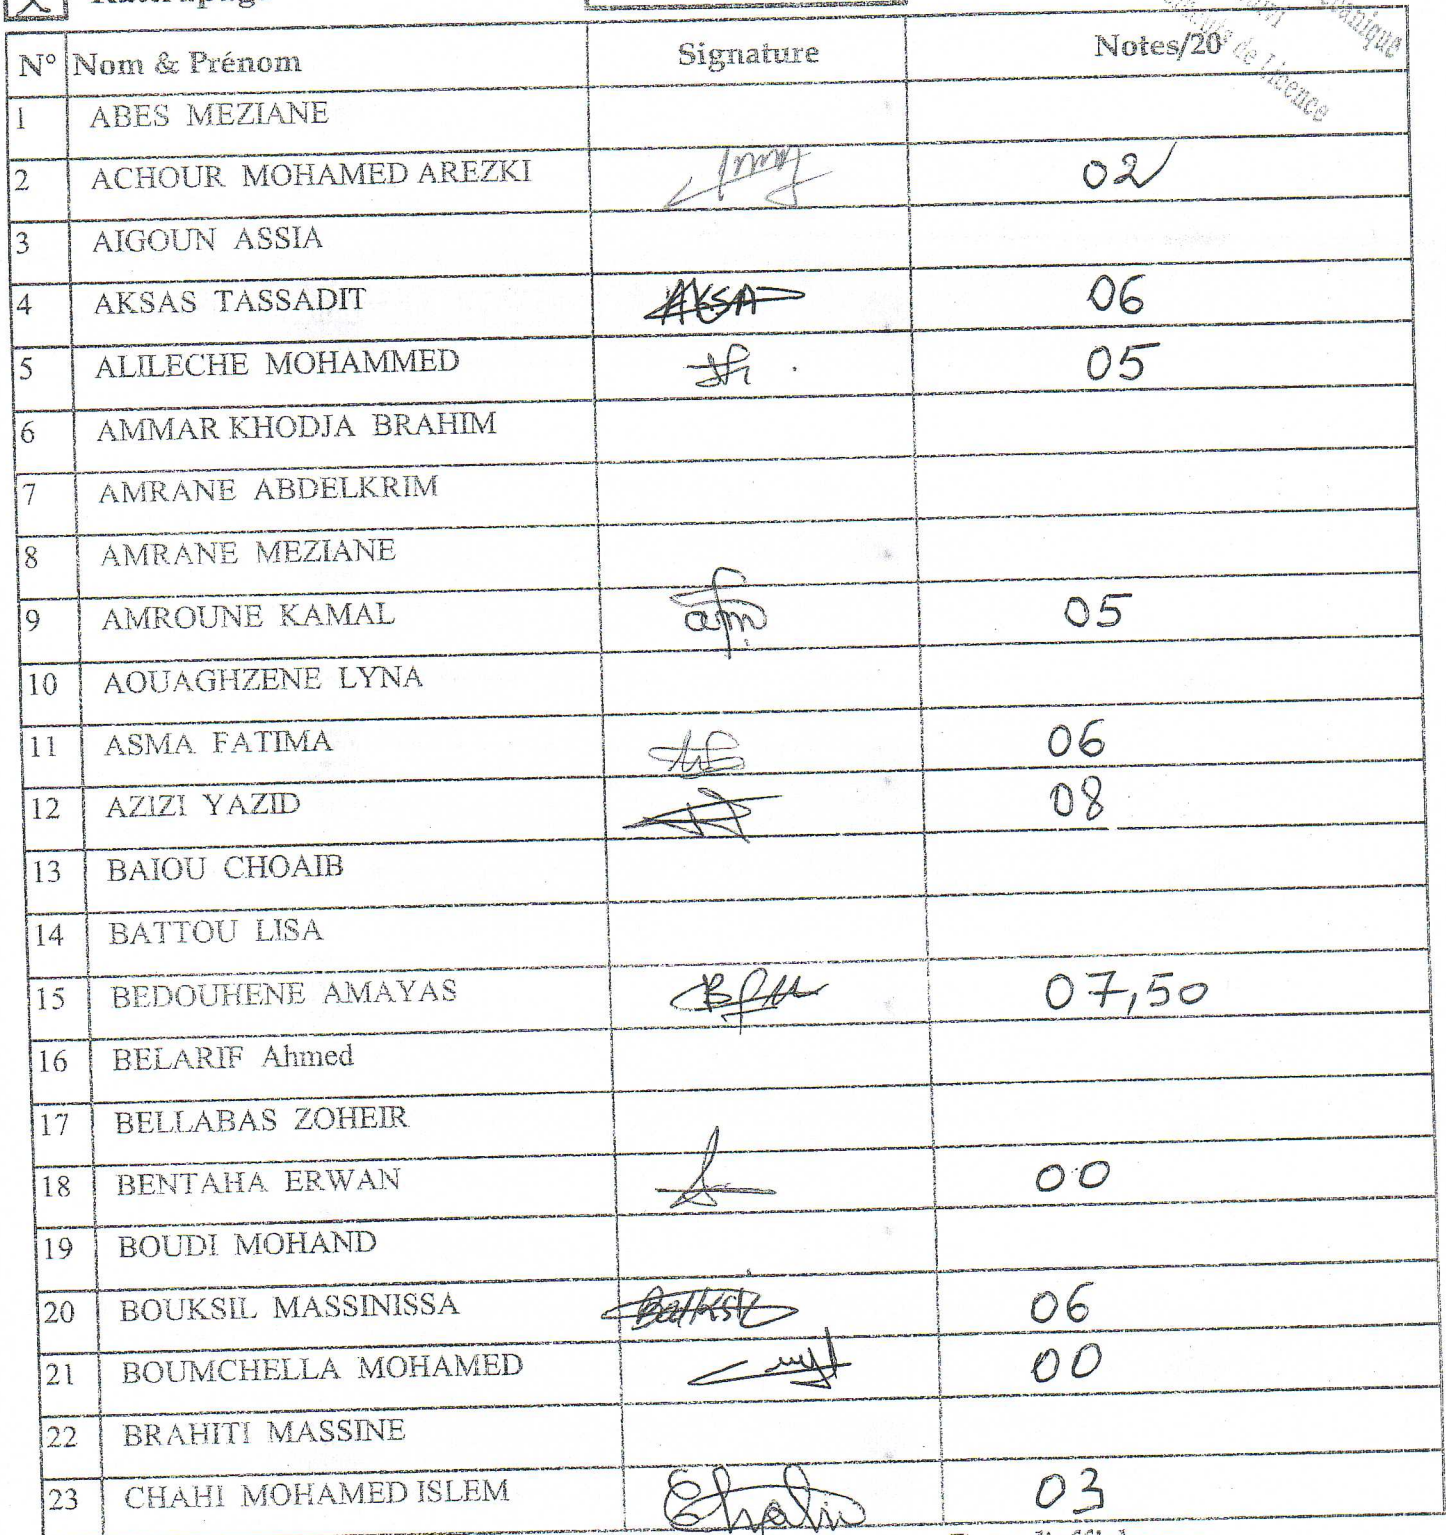 N° Nom & Prénom Signature Notes/20
de Licence
1 ABES MEZIANE
2 ACHOUR MOHAMED AREZKI 02
3 AIGOUN ASSIA
4 AKSAS TASSADIT AKSA 06
5 ALILECHE MOHAMMED 05
6 AMMAR KHODJA BRAHIM
7 AMRANE ABDELKRIM
8 AMRANE MEZIANE
9 AMROUNE KAMAL 05
10 AOUAGHZENE LYNA
11 ASMA FATIMA 06
12 AZIZI YAZID 08
13 BAIOU CHOAIB
14 BATTOU LISA
15 BEDOUHENE AMAYAS 07,50
16 BELARIF Ahmed
17 BELLABAS ZOHEIR
18 BENTAHA ERWAN 00
19 BOUDI MOHAND
20 BOUKSIL MASSINISSA 06
21 BOUMCHELLA MOHAMED 00
22 BRAHITI MASSINE
23 CHAHI MOHAMED ISLEM 03